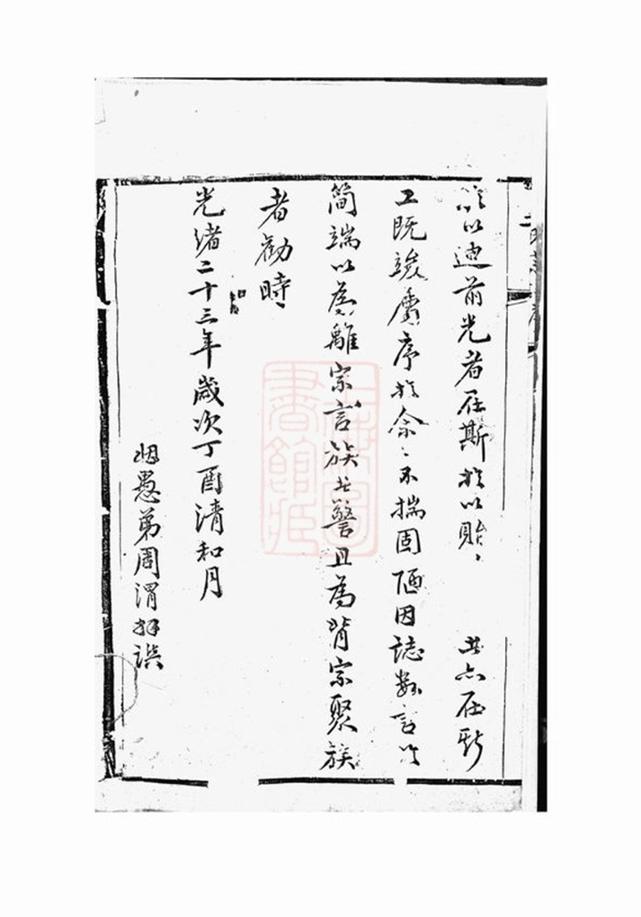 以迪前光者在斯於以貽 其亦在斯
工既竣屬序於余〻不揣固陋因誌數言以
簡端以為離宗言族者警且為背宗聚族
者勸時
光緒二十三年歲次丁酉清和月
姻愚弟周渭拜譔